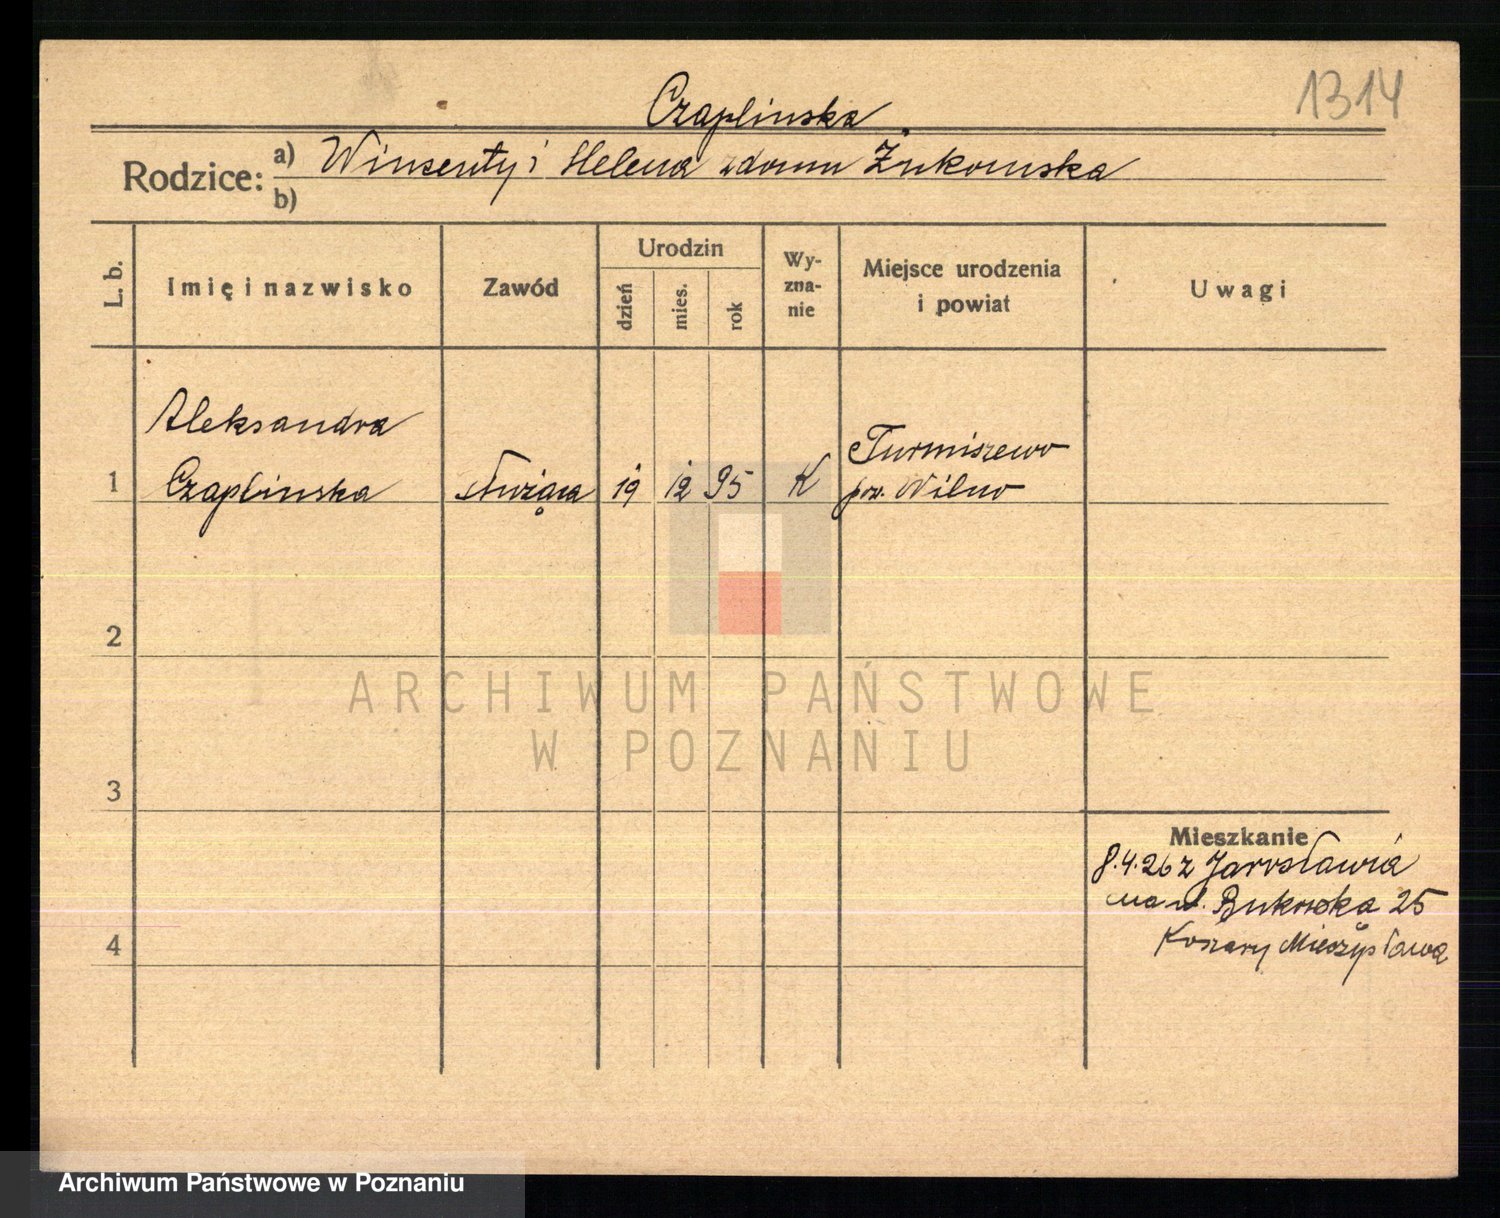 1314
Czaplinska
Rodzice: a) Winzenty i Helena z domu Żukowska
b)
L. b.
Imię i nazwisko
Zawód
Urodzin
dzień
mies.
rok
Wy-
zna-
nie
Miejsce urodzenia
i powiat
Uwagi
Aleksandra
1 Czaplinska służąca 19 12 95 K
Turmiszewo
pow. Wilno
2
3
4
Mieszkanie
8.4.26 z Jarosławia
na ul. Bukowska 25
Koszary Mieczysława
ARCHIWUM PAŃSTWOWE
W POZNANIU
Archiwum Państwowe w Poznaniu